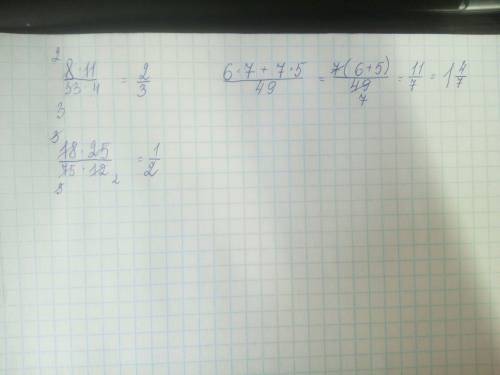 2
8·11/33·4 = 2/3
3
6·7+7·5/49 = 7(6+5)/49 = 11/7 = 1 4/7
7
3
18·25/75·12 = 1/2
3 2